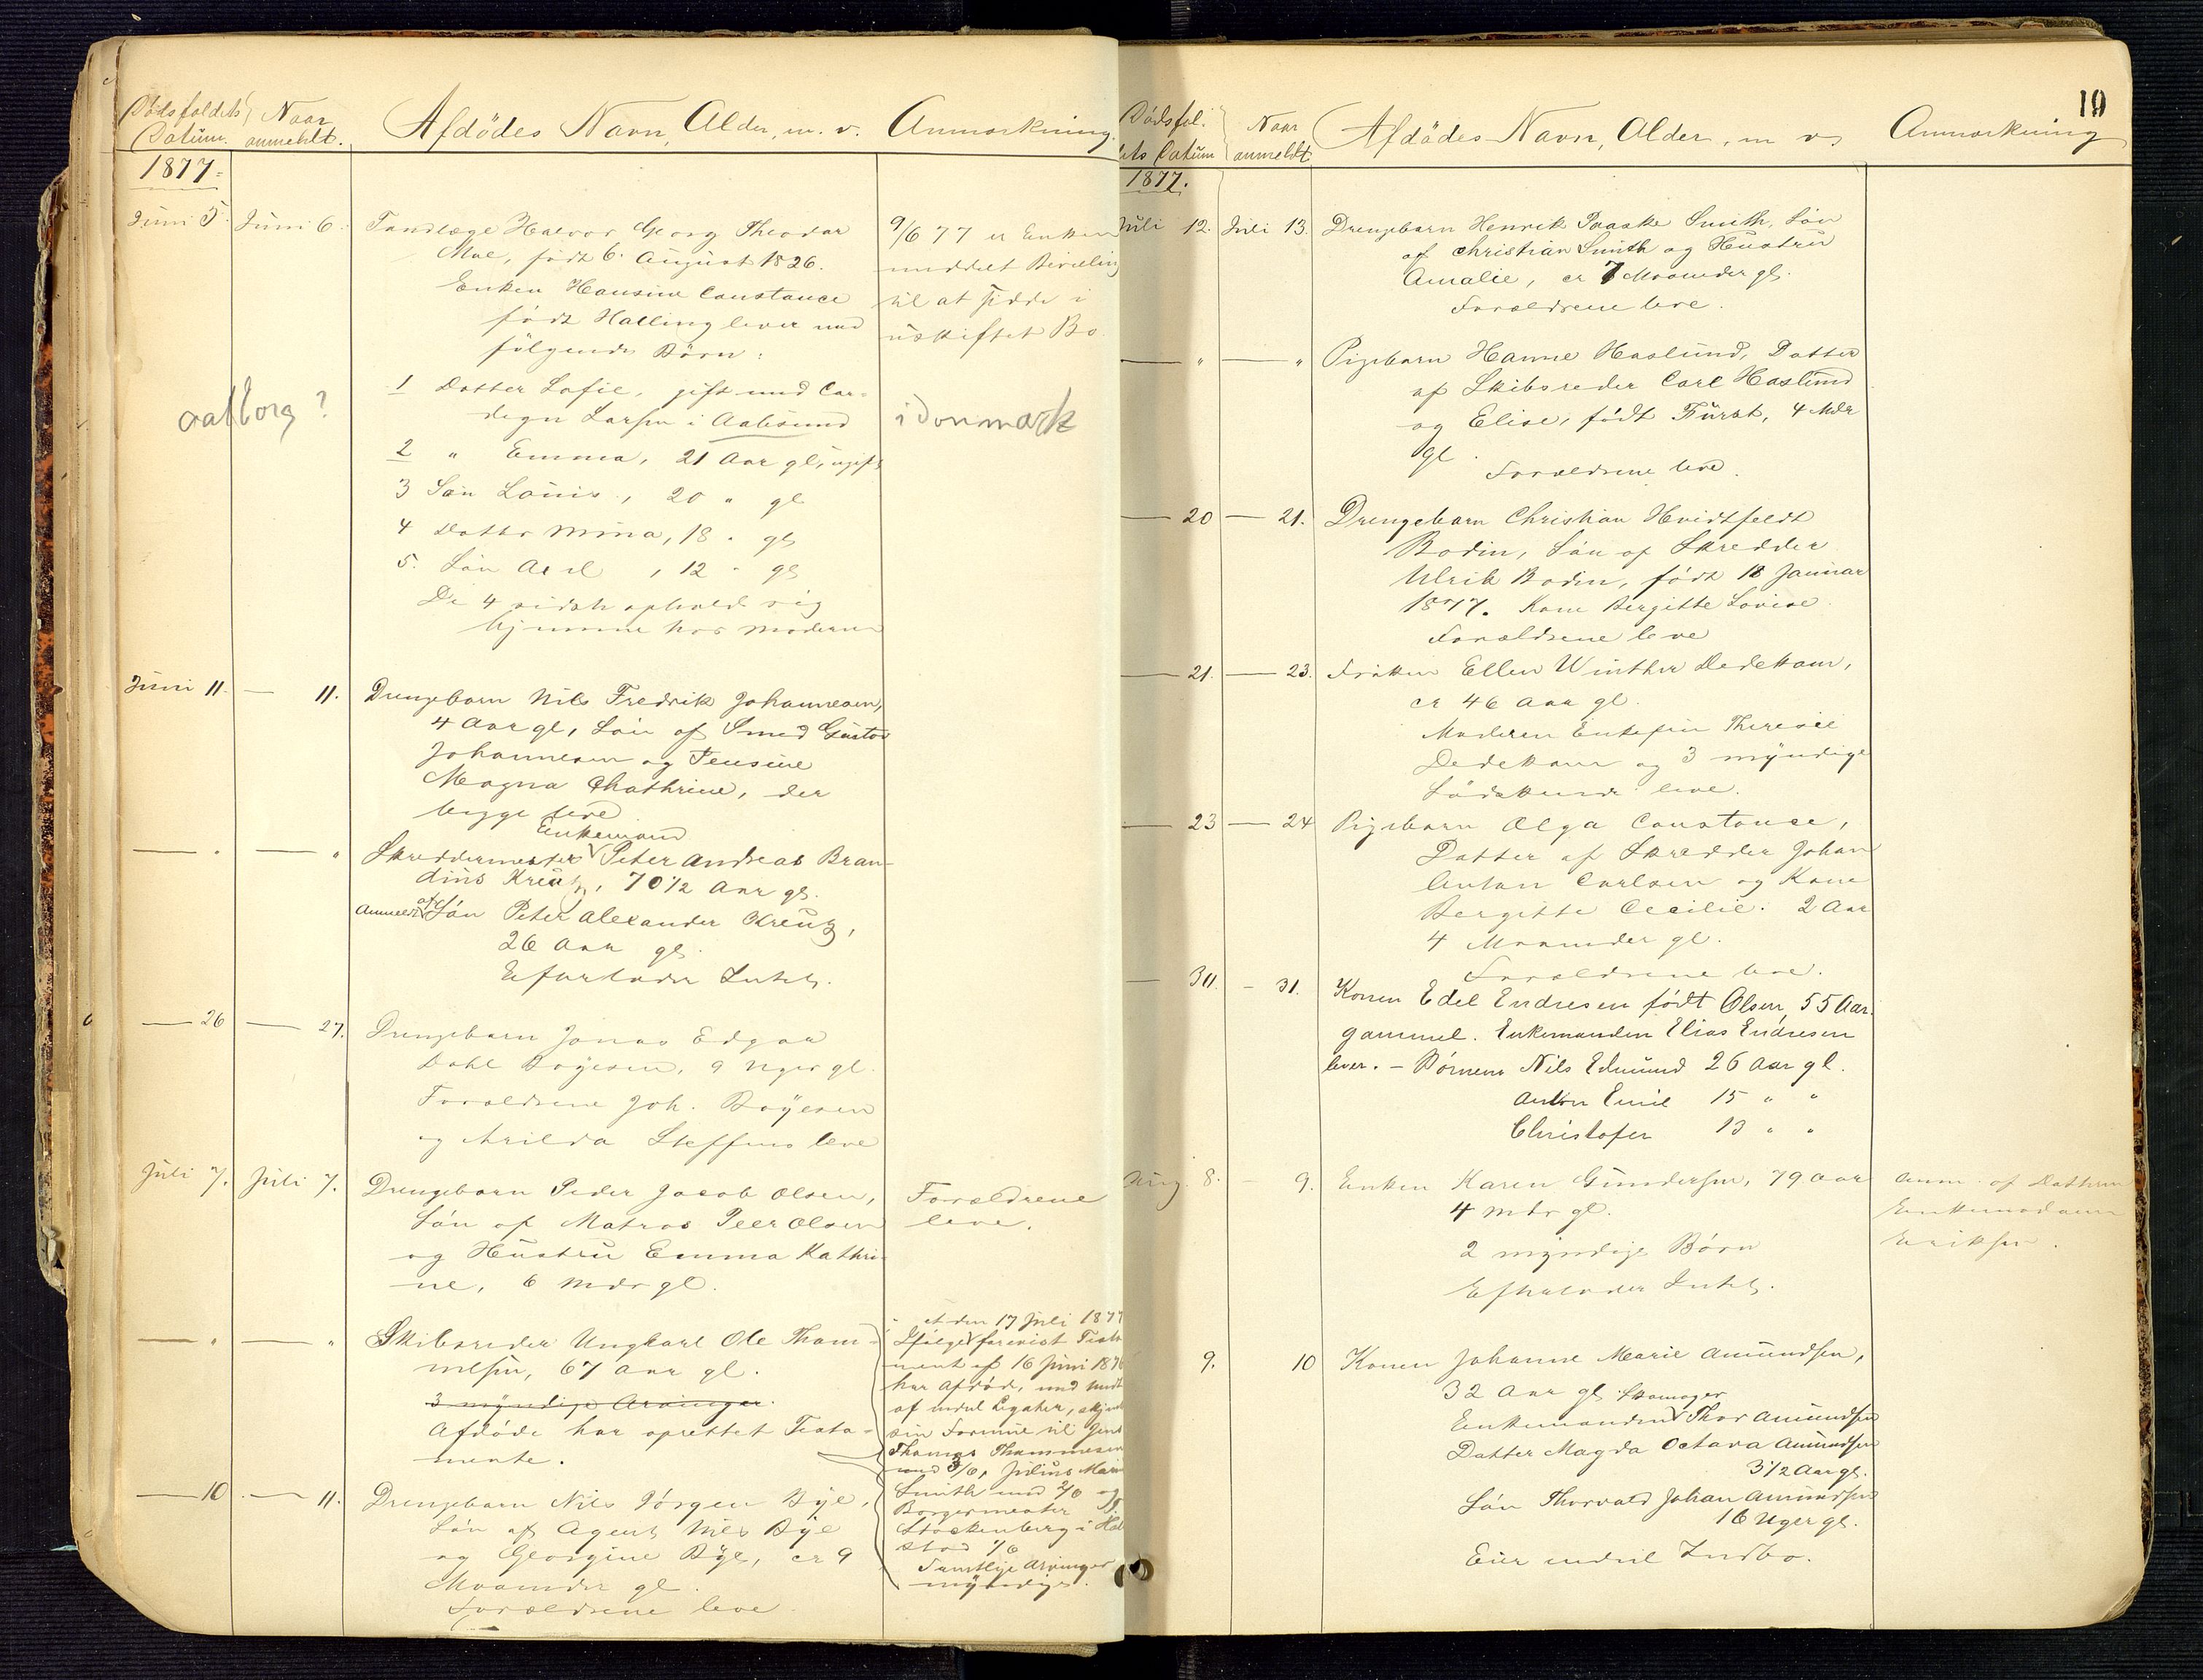 Dødsfaldets Datum. Naar anmeldt. Afdødes Navn, Alder, m. v. Anmærkning.
1877.
Juni 5. Juni 6. Tandlæge Halvor Georg Theodor
Moe, født 6. August 1826.
Enken Hansine Constance
født Halling lever med
følgende Børn:
1 Datter Sofie, gift med
Larsen i Aalesund
2 " Emma, 21 Aar gl, ugift
3 Søn Louis, 20 " gl
4 Datter Mina, 18 " gl
5. Søn Axel, 12 " gl
De 4 sidste opholde sig
hjemme hos Moderen
9/6 77 er Enken
meddelt Bevilling
til at sidde i
uskiftet Bo.
aalborg?
i Danmark
Juni 11. — 11. Drengebarn Nils Fredrik Johannesen,
4 Aar gl, Søn af Smed Gustav
Johannesen og Jensine
Magna Chathrine, der
begge leve
— " — " Skreddermester Enkemand Peter Andreas Bran-
dius Kreutz, 70 1/2 Aar gl.
Anmeldt af Søn Peter Alexander Kreutz,
26 Aar gl.
Efterlader Intet.
— 26 — 27. Drengebarn Jonas Edgar
Dahl Bøyesen, 9 Uger gl.
Forældrene Joh. Bøyesen
og Arilda Steffens leve
Juli 7. Juli 7. Drengebarn Peder Jacob Olsen,
Søn af Matros Peer Olsen
og Hustru Emma Kathri-
ne, 6 Mdr gl.
Forældrene
leve.
— " — " Skibsreder Ungkarl Ole Thom-
mesen, 67 Aar gl.
3 myndige Arvinger.
Afdøde har oprettet Testa-
mente.
et den 17 Juli 1877
Ifølge forevist Testa
ment af 16 Juni 1876
har Afdøde, med
af endel Legater,
sin Formue til
Thomas Thommesen
med 3/6, Julius Marin
Smith med 2/6 og
Borgermester T.
Stockenberg i Hal
stad 1/6
Samtlige Arvinger
myndige.
— 10. — 11. Drengebarn Nils Jørgen Bye,
Søn af Agent Nils Bye
og Georgine Bye, ca 9
Maaneder gl.
Forældrene leve
19
Dødsfal-
dets Datum Naar anmeldt Afdødes Navn, Alder, m v. Anmærkning
1877.
Juli 12. Juli 13. Drengebarn Henrik Paaske Smith, Søn
af Christian Smith og Hustru
Amalie, ca 7 Maaneder gl.
Forældrene leve.
— " — " Pigebarn Hanne Haslund, Datter
af Skibsreder Carl Haslund
og Elise, født Fürst, 4 Mdr
gl.
Forældrene leve.
— 20 — 21. Drengebarn Christian Hvidtfeldt
Bodin, Søn af Skredder
Ulrik Bodin, født 18 Januar
1877. Kone Bergitte Lovise
Forældrene leve
— 21. — 23. Frøken Ellen Winther Dedekam,
ca 46 Aar gl.
Moderen Enkefru Theresie
Dedekam og 3 myndige
Sødskende leve.
— 23 — 24 Pigebarn Olga Constance,
Datter af Skredder Johan
Anton Carlsen og Kone
Bergitte Cecilie. 2 Aar
4 Maaneder gl.
Forældrene leve.
— 30. - 31. Konen Edel Endresen født Olsen, 55 Aar
gammel. Enkemanden Elias Endresen
lever. — Børnene Nils Edmund 26 Aar gl.
Anton Emil 15 " "
Christofer 13 " "
Aug. 8. - 9. Enken Karen Gundersen, 79 Aar
4 Mdr gl.
2 myndige Børn
Efterlader Intet.
Anm. af Datteren
Enkemadam
Eriksen.
9. 10 Konen Johanne Marie Amundsen,
32 Aar gl.
Enkemanden Skomager Thor Amundsen
Datter Magda Octava Amundsen
3 1/2 Aar gl.
Søn Thorvald Johan Amundsen
16 Uger gl.
Eier endel Indbo.